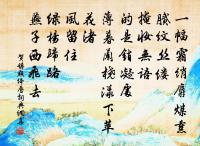 一幅霜綃麝煤熏
膩紋絲縷
掩妝無語
的是銷凝處
薄暮蘭橈漾下苹
花渚
風留住
綠楊歸路
燕子西飛去
賀鑄點絳唇詞